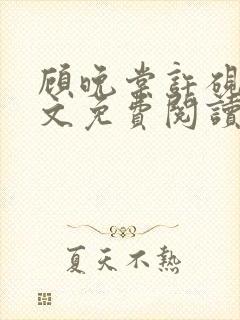 顾晚棠許硯
文免費閱讀
夏天不熱